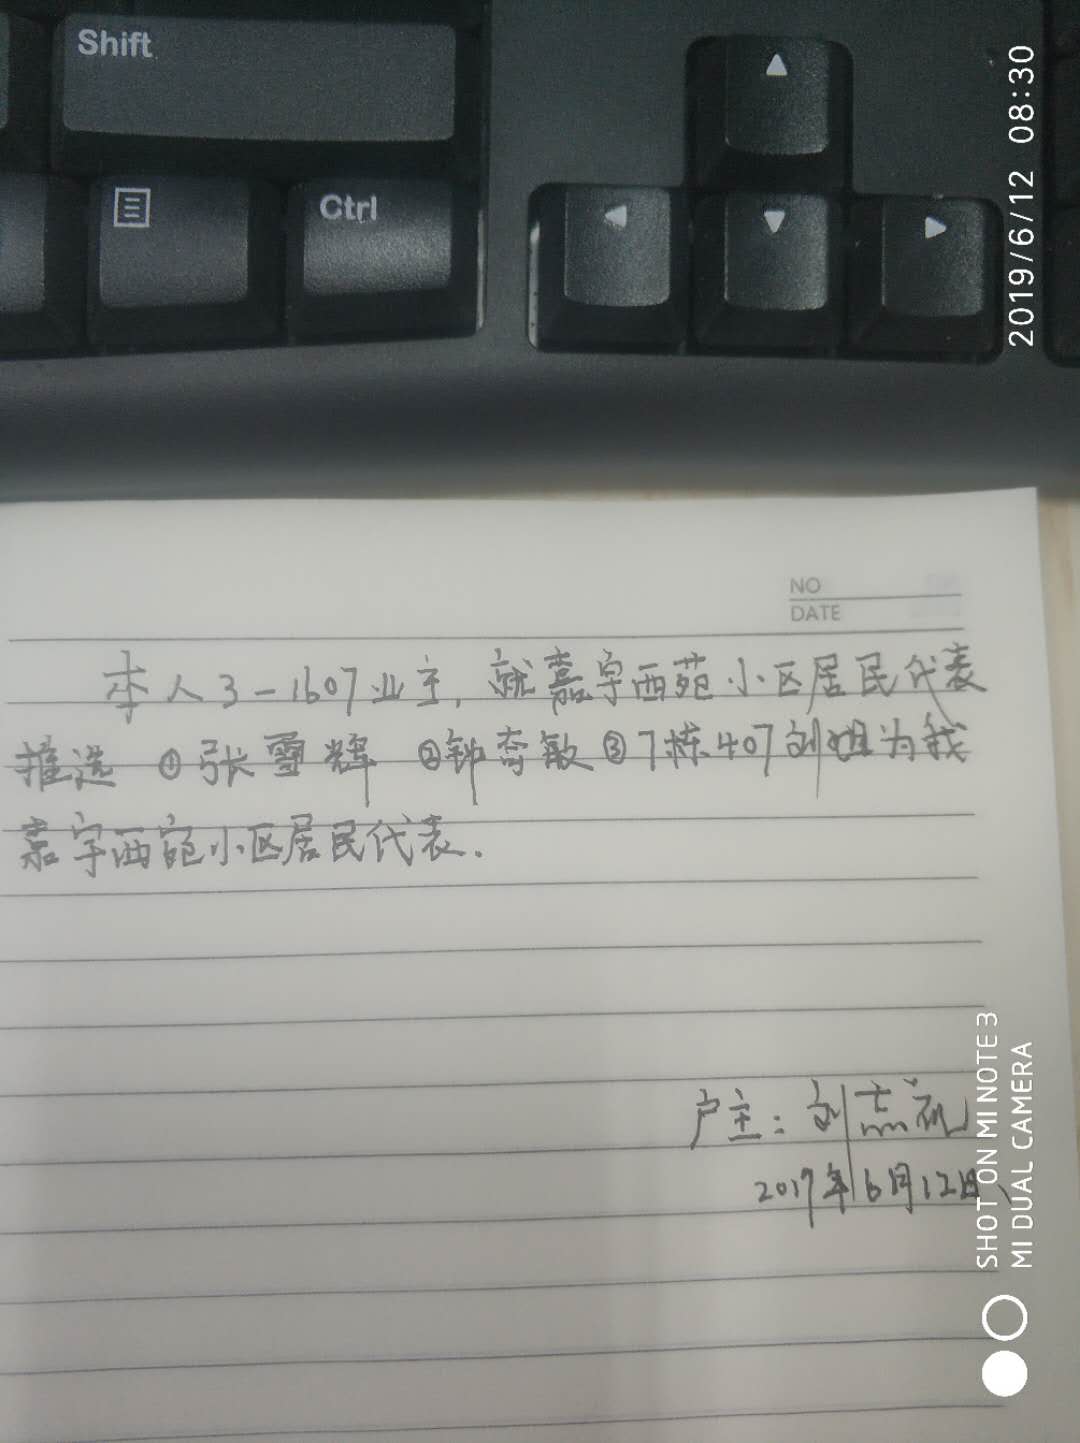 Shift
Ctrl
2019/6/12 08:30
NO
DATE
本人3-1607业主,就嘉宇西苑小区居民代表
推选 ①张雪辉 ②钟奇敏③7栋407刘姐为我
嘉宇西苑小区居民代表.
户主:刘志礼
2019年6月12日
SHOT ON MI NOTE 3
MI DUAL CAMERA